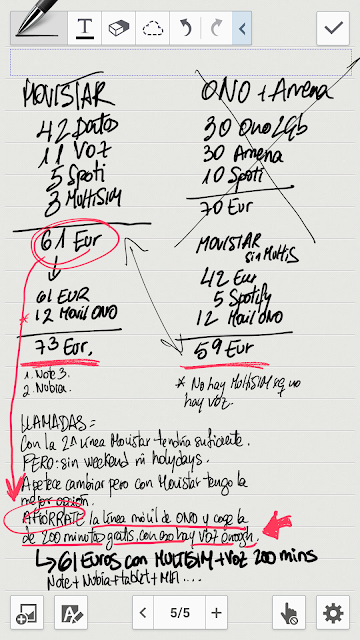 T
MOVISTAR
42 Datos
11 VOZ
5 Spoti
3 MULTISIM
61 Eur
61 EUR
* 12 Movil ONO
73 Eur.
1. Note 3.
2. Nubia.
ONO + Amena
30 Ono 1Gb
30 Amena
10 Spoti
70 Eur
MOVISTAR
sin Multis
42 Eur
5 Spotify
12 Movil ONO
59 Eur
* No hay MultiSIM xq no
hay VOZ.
LLAMADAS =
Con la 2ª línea Movistar tendría suficiente.
PERO: sin weekend ni holydays.
Apetece cambiar pero con Movistar tengo la
mejor opción.
AHÓRRATE la línea móvil de ONO y coge la
de 200 minutos gratis, con eso hay VOZ enough.
↳ 61 Euros con MULTISIM + VOZ 200 mins
Note + Nubia + tablet + MIFI ....
A
< 5/5 >